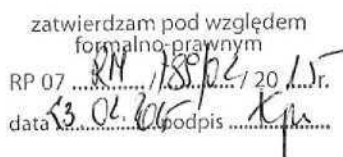 zatwierdzam pod względem
formalno-prawnym
RP 07 RN /189/02/ 20 15r.
data 23.02.2015 podpis